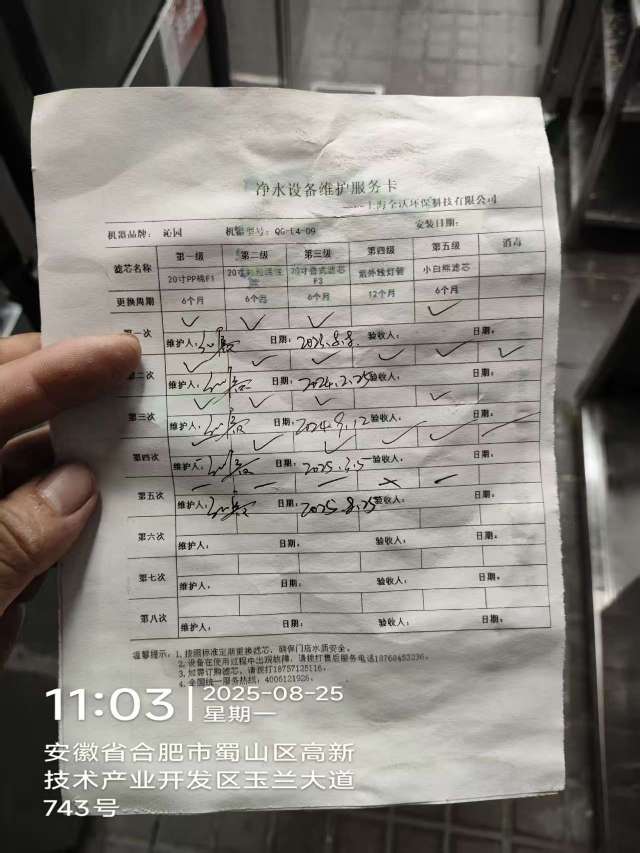 净水设备维护服务卡
上海全沃环保科技有限公司
机器品牌: 沁园 机器型号: QG-L4-09 安装日期:
滤芯名称 第一级 第二级 第三级 第四级 第五级 消毒
20寸PP棉F1 20寸 20寸 滤芯F3 紫外线灯管 小白熊滤芯
更换周期 6个月 6个月 6个月 12个月 6个月
✓ ✓ ✓ ✓
第一次 维护人: 日期: 8.8 验收人:
✓ ✓ ✓ ✓ ✓ ✓
第二次 维护人: 日期: 2024.2.25 验收人:
✓ ✓ ✓ ✓
第三次 维护人: 日期: 2024.9.12 验收人:
✓ ✓ ✓ ✓ ✓ —
第四次 维护人: 日期: 2025. .5 验收人:
— — — × —
第五次 维护人: 日期: 2025.8.25 验收人:
第六次 维护人: 日期: 验收人: 日期:
第七次 维护人: 日期: 验收人: 日期:
第八次 维护人: 日期: 验收人: 日期:
温馨提示: 1.按照标准定期更换滤芯, 确保门店水质安全。
2.设备在使用过程中出现故障, 请拨打售后服务电话18768453236。
3.如需订购滤芯, 请拨打18757125116。
4.全国统一服务热线: 4006121926。
11:03 2025-08-25
星期一
安徽省合肥市蜀山区高新
技术产业开发区玉兰大道
743号